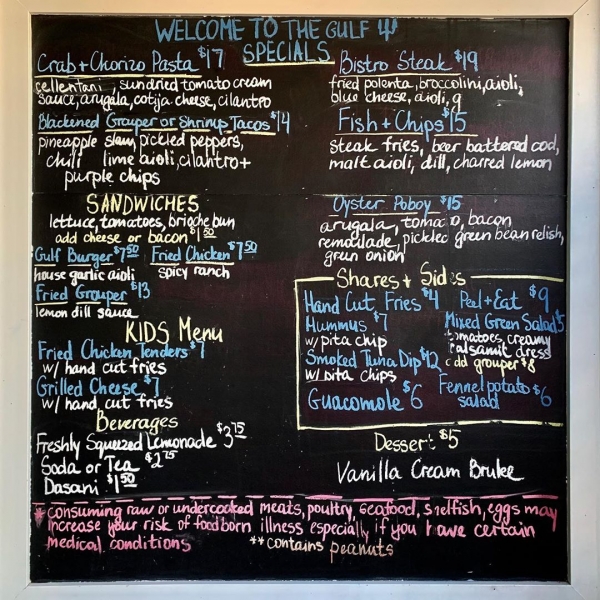 WELCOME TO THE GULF
SPECIALS
Crab + Chorizo Pasta $17
cellentani, sundried tomato cream
sauce, arugala, cotija cheese, cilantro
Blackened Grouper or Shrimp Tacos $14
pineapple slaw, pickled peppers,
chili lime aioli, cilantro +
purple chips
Bistro Steak $19
fried polenta, broccolini, aioli,
blue cheese, aioli, g
Fish + Chips $15
steak fries, beer battered cod,
malt aioli, dill, charred lemon
SANDWICHES
lettuce, tomatoes, brioche bun
add cheese or bacon $1.50
Gulf Burger $7.50 Fried Chicken $7.50
house garlic aioli spicy ranch
Fried Grouper $13
lemon dill sauce
Oyster Poboy $15
arugala, tomato, bacon
remoulade, pickled green bean relish,
green onion
KIDS Menu
Fried Chicken Tenders $7
w/ hand cut fries
Grilled Cheese $7
w/ hand cut fries
Beverages
Freshly Squeezed Lemonade $3.75
Soda or Tea $2.75
Dasani $1.50
Shares + Sides
Hand Cut Fries $4
Hummus $7
w/ pita chip
Smoked Tuna Dip $12
w/ pita chips
Guacomole $6
Peel + Eat $9
Mixed Green Salad $5
tomatoes, creamy
balsamic dress
add grouper $8
Fennel potato $6
salad
Dessert $5
Vanilla Cream Brulee
* consuming raw or undercooked meats, poultry, seafood, shelfish, eggs may
increase your risk of foodborn illness especially if you have certain
medical conditions **contains peanuts